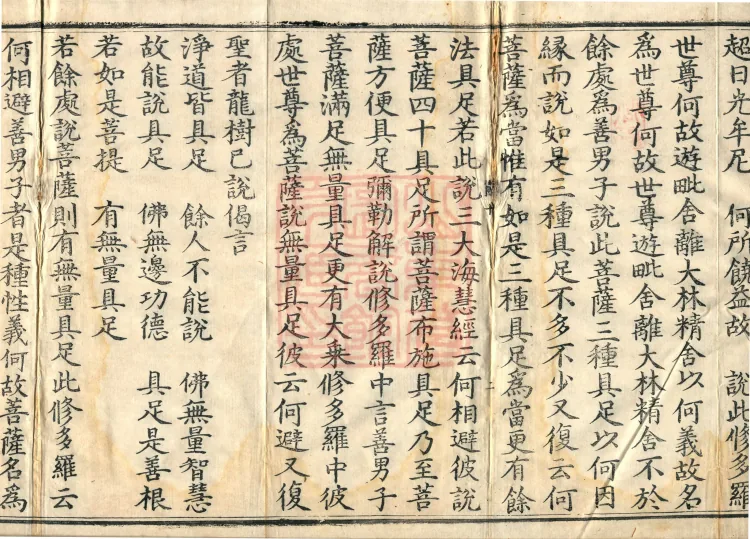 超日光年尼　何所饒益故　說此修多羅
世尊何故遊毗舍離大林精舍以何義故名
為世尊何故世尊遊毗舍離大林精舍不於
餘處為善男子說此菩薩三種具足以何因
緣而說如是三種具足不多不少又復云何
菩薩為當惟有如是三種具足為當更有餘
法具足若此說三大海慧經云何相避彼說
菩薩四十具足所謂菩薩布施具足乃至菩
薩方便具足彌勒解說修多羅中言善男子
菩薩滿足無量具足更有大乘修多羅中彼
處世尊為菩薩說無量具足彼云何避又復
聖者龍樹已說偈言
淨道皆具足　餘人不能說　佛無量智慧
故能說具足　佛無邊功德　具足是善根
若如是菩提　有無量具足
若餘處說菩薩則有無量具足此修多羅云
何相避善男子者是種性義何故菩薩名為